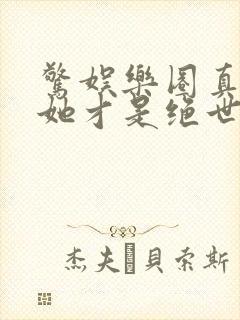 驚娛樂圈真
她才是絕世
杰夫 貝索斯